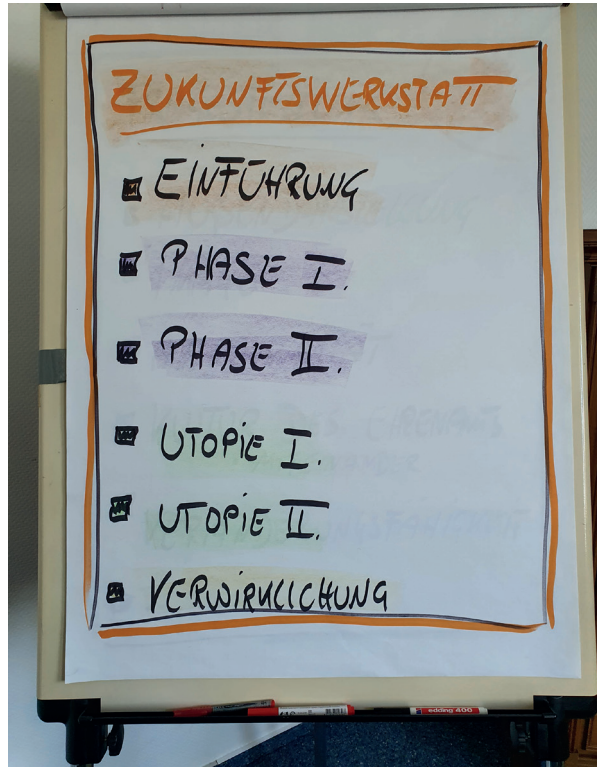 ZUKUNFTSWERKSTATT
EINFÜHRUNG
PHASE I.
PHASE II.
UTOPIE I.
UTOPIE II.
VERWIRKLICHUNG
edding 400